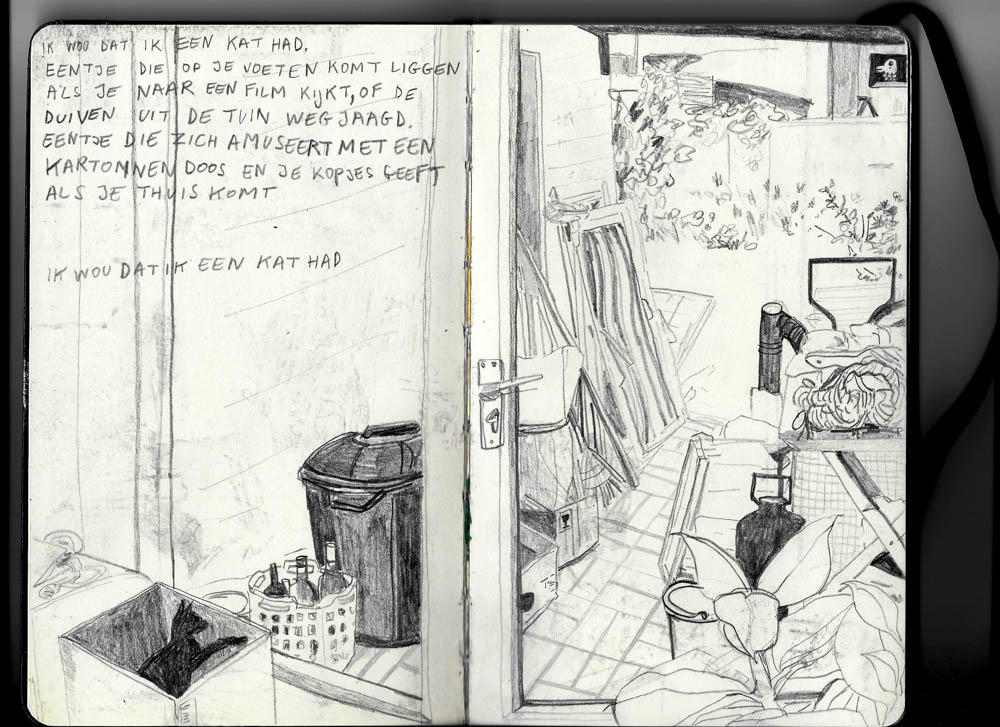 IK WOU DAT IK EEN KAT HAD.
EENTJE DIE OP JE VOETEN KOMT LIGGEN
ALS JE NAAR EEN FILM KIJKT, OF DE
DUIVEN UIT DE TUIN WEGJAAGD.
EENTJE DIE ZICH AMUSEERT MET EEN
KARTONNEN DOOS EN JE KOPJES GEEFT
ALS JE THUIS KOMT
IK WOU DAT IK EEN KAT HAD